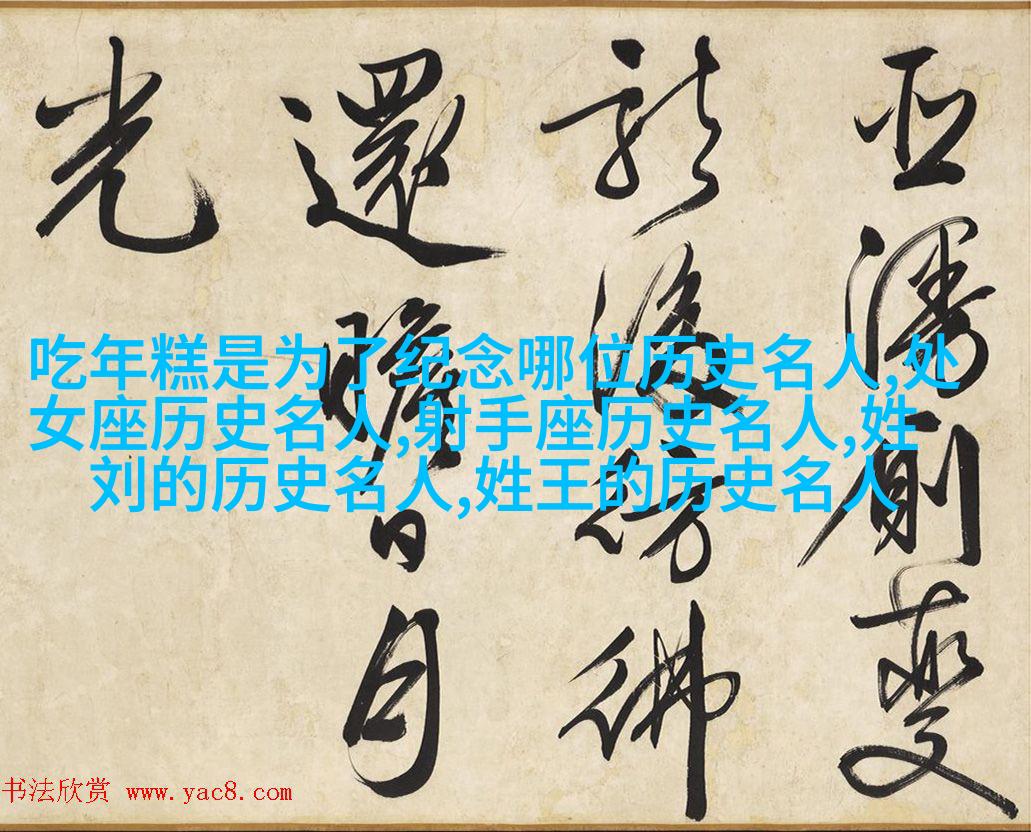 吃年糕是为了纪念哪位历史名人,处
女座历史名人,射手座历史名人,姓
刘的历史名人,姓王的历史名人
則變
彷彿
還瞻日月
光
书法欣赏 www.yac8.com